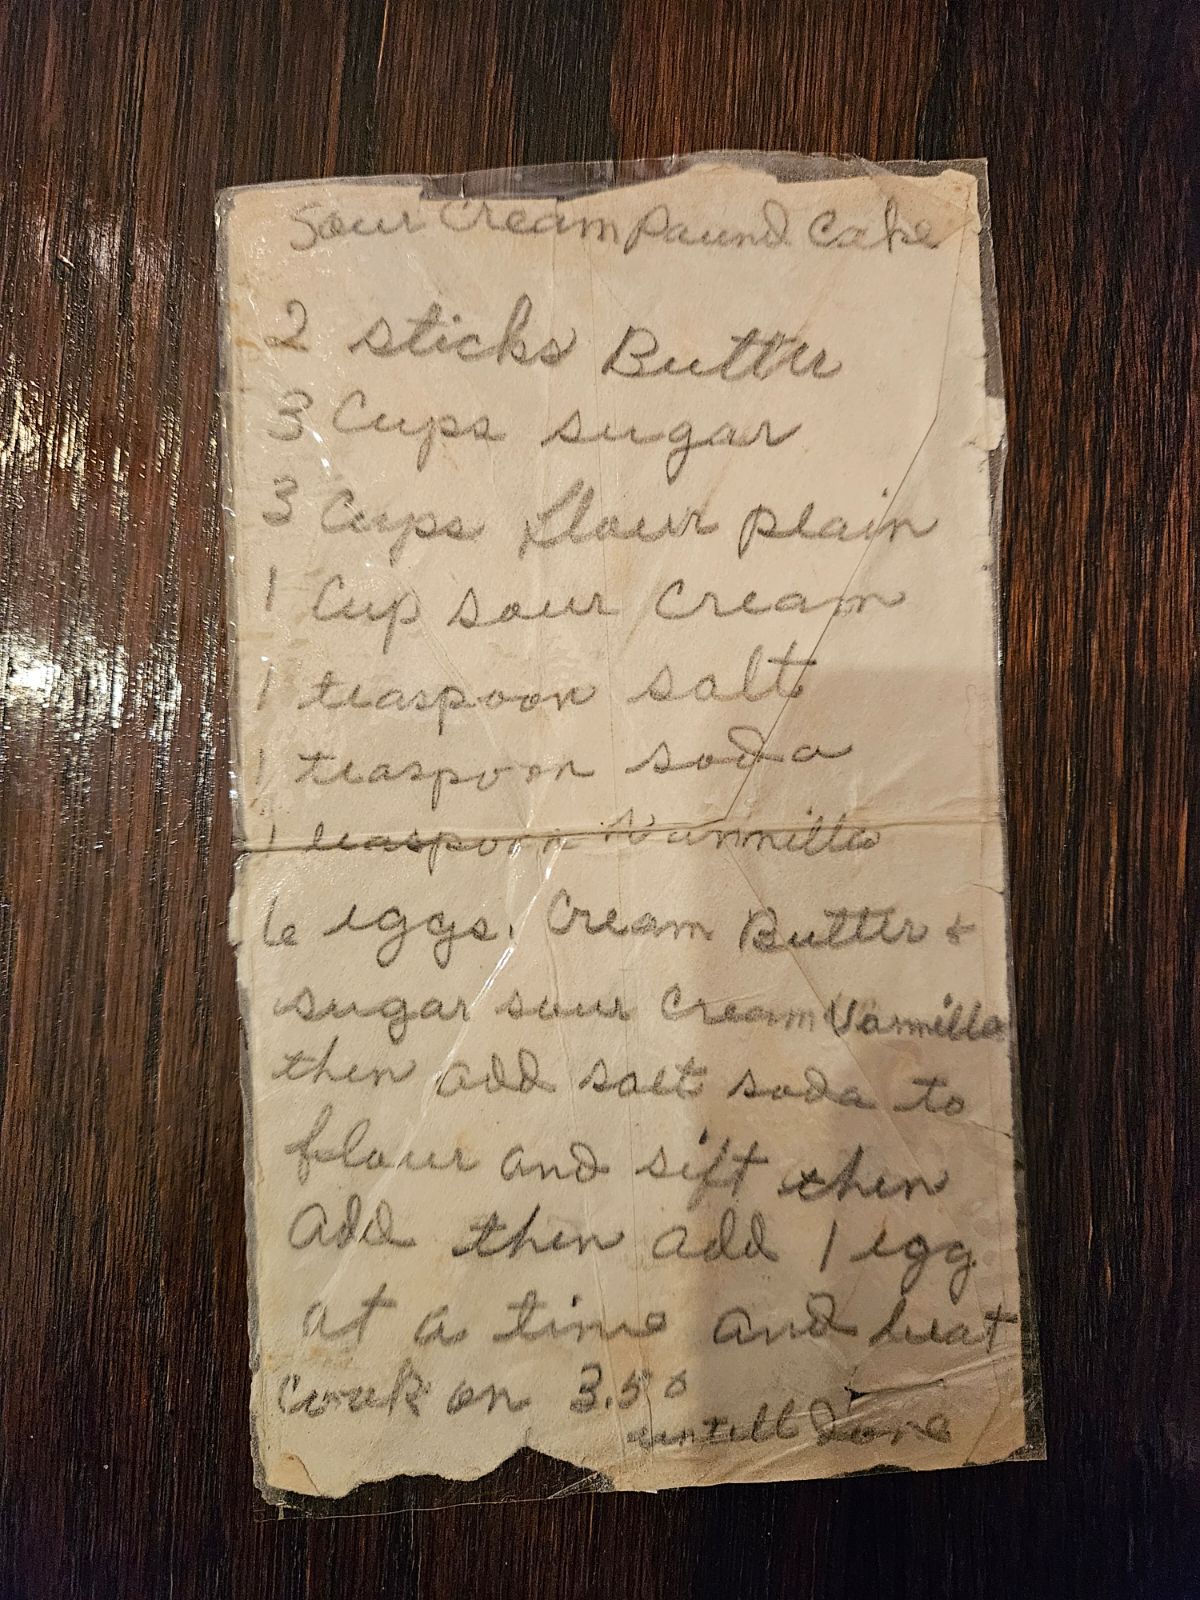 Sour Cream Paund Cake
2 sticks Butter
3 Cups sugar
3 Cups flour plain
1 Cup sour Cream
1 teaspoon salt
1 teaspoon soda
1 teaspoon Vannilla
6 eggs. Cream Butter +
sugar sour Cream Vannilla
then add salt soda to
flour and sift then
add then add 1 egg
at a time and beat
Cook on 3.50
untill done